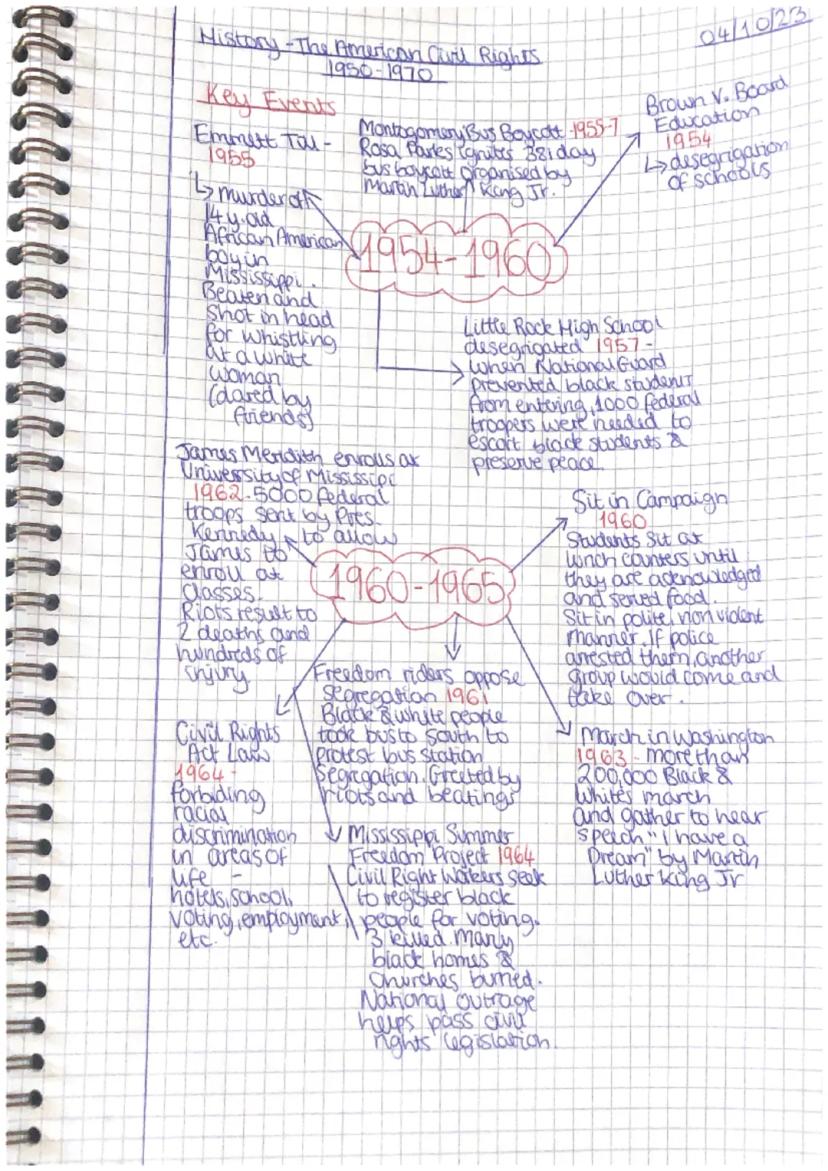 04/10/23
History - The American Civil Rights
1950-1970
Key Events
Emmett Tal -
1955
↳ murder of
14 y. old
African American
boy in
Mississippi.
Beaten and
shot in head
for whistling
at a white
woman
(dared by
friends)
Montogomery Bus Boycott 1955-7
Rosa Parks ignites 381 day
bus boycott organised by
Martin Luther King Jr.
Brown V. Board
Education
1954
↳ desegrigation
of schools
1954-1960
Little Rock High School
desegrigated 1957 -
when National Guard
prevented black student
from entering, 1000 federal
troopers were needed to
escort black students &
preserve peace.
James Meridith enrolls at
University of Mississipi
1962. 5000 federal
troops sent by Pres.
Kennedy to allow
James to
enroll at
classes.
Riots result to
2 deaths and
hundreds of
injury
1960-1965
Sit in Campaign
1960
Students sit at
lunch counters until
they are acknowledged
and served food.
Sit in polite, non violent
manner. If police
arrested them, another
group would come and
take over.
Freedom riders oppose
segregation 1961
Black & white people
took bus to south to
protest bus station
segregation. Greeted by
riots and beatings
Civil Rights
Act Law
1964 -
forbiding
racial
discrimination
in areas of
life -
hotels, school,
voting, employment,
etc.
Mississippi Summer
Freedom Project 1964
Civil Right Workers seek
to register black
people for voting.
3 killed. Many
black homes &
Churches burned.
National outrage
helps pass civil
rights legislation.
March in Washington
1963 - more than
200,000 Black &
Whites march
and gather to hear
speech "I have a
Dream" by Martin
Luther King Jr